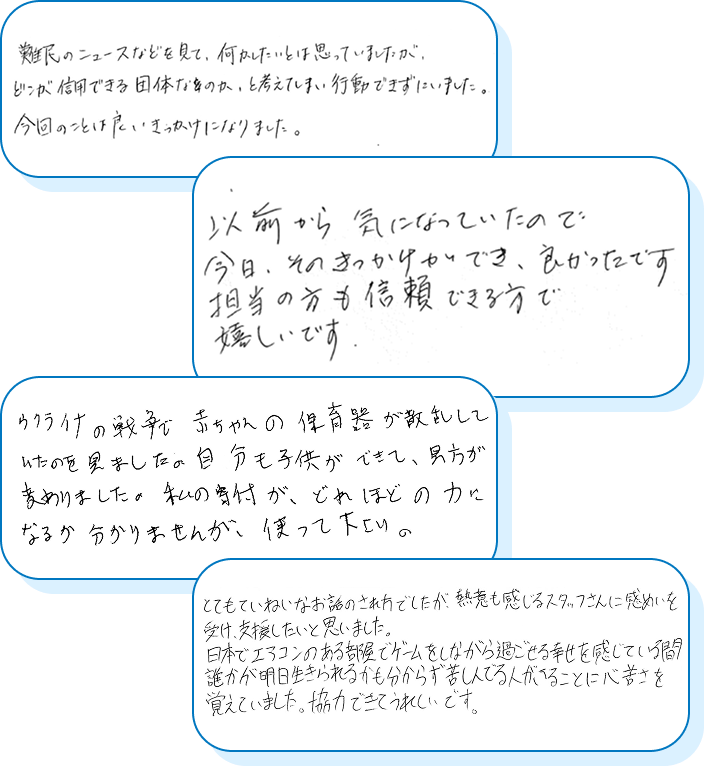 難民のニュースなどを見て、何かしたいとは思っていましたが、
どこが信用できる団体なのか、と考えてしまい行動できずにいました。
今回のことは良いきっかけになりました。
以前から気になっていたので
今日、そのきっかけができ、良かったです
担当の方も信頼できる方で
嬉しいです.
ウクライナの戦争で赤ちゃんの保育器が散乱して
いたのを見ました。自分も子供ができて、見方が
変わりました。私の寄付が、どれほどの力に
なるか分かりませんが、使って下さい。
とてもていねいなお話のされ方でしたが、熱意も感じるスタッフさんに感めいを
受け、支援したいと思いました。
日本でエアコンのある部屋でゲームをしながら過ごせる幸せを感じている間
誰かが明日生きられるかも分からず苦しんでる人がいることに心苦さを
覚えていました。協力できてうれしいです。